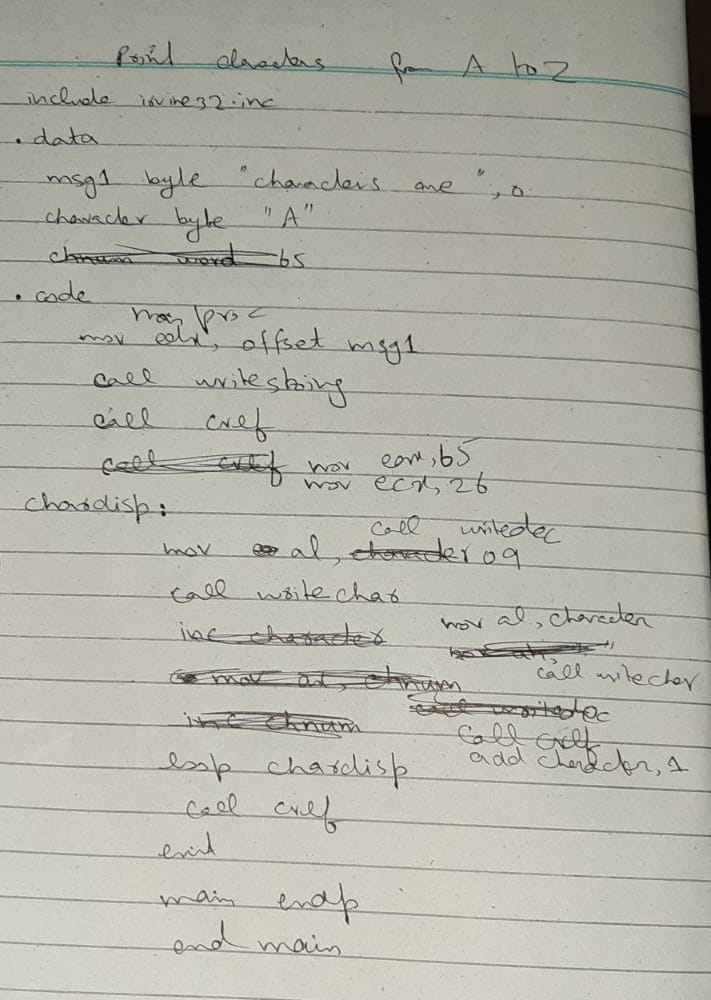 Print characters from A to Z
include irvine32.inc
.data
msg1 byte "characters are ", 0
character byte "A"
chnum word 65
.code
main proc
mov edx, offset msg1
call writestring
call crlf
call crlf mov eax, 65
mov ecx, 26
chardisp:
call writedec
mov al, character 09
call writechar
inc character mov al, character
mov al, chnum call writechar
call writedec
inc chnum call crlf
loop chardisp add character, 1
call crlf
exit
main endp
end main